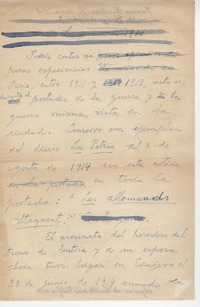 Podría contar no
pocas experiencias
París, entre 1911 y 1918, esto es
preludio de la guerra y de la
guerra misma, vista en la
ciudad. Conservo un ejemplar
del diario La Patrie del 2 de
agosto de 1914 con esta noticia
en toda la
portada: "Les allemands
attaquent,"
El asesinato del heredero del
trono de Austria y de su esposa
checa tuvo lugar en Sarajevo el
28 de junio de 1914 cuando